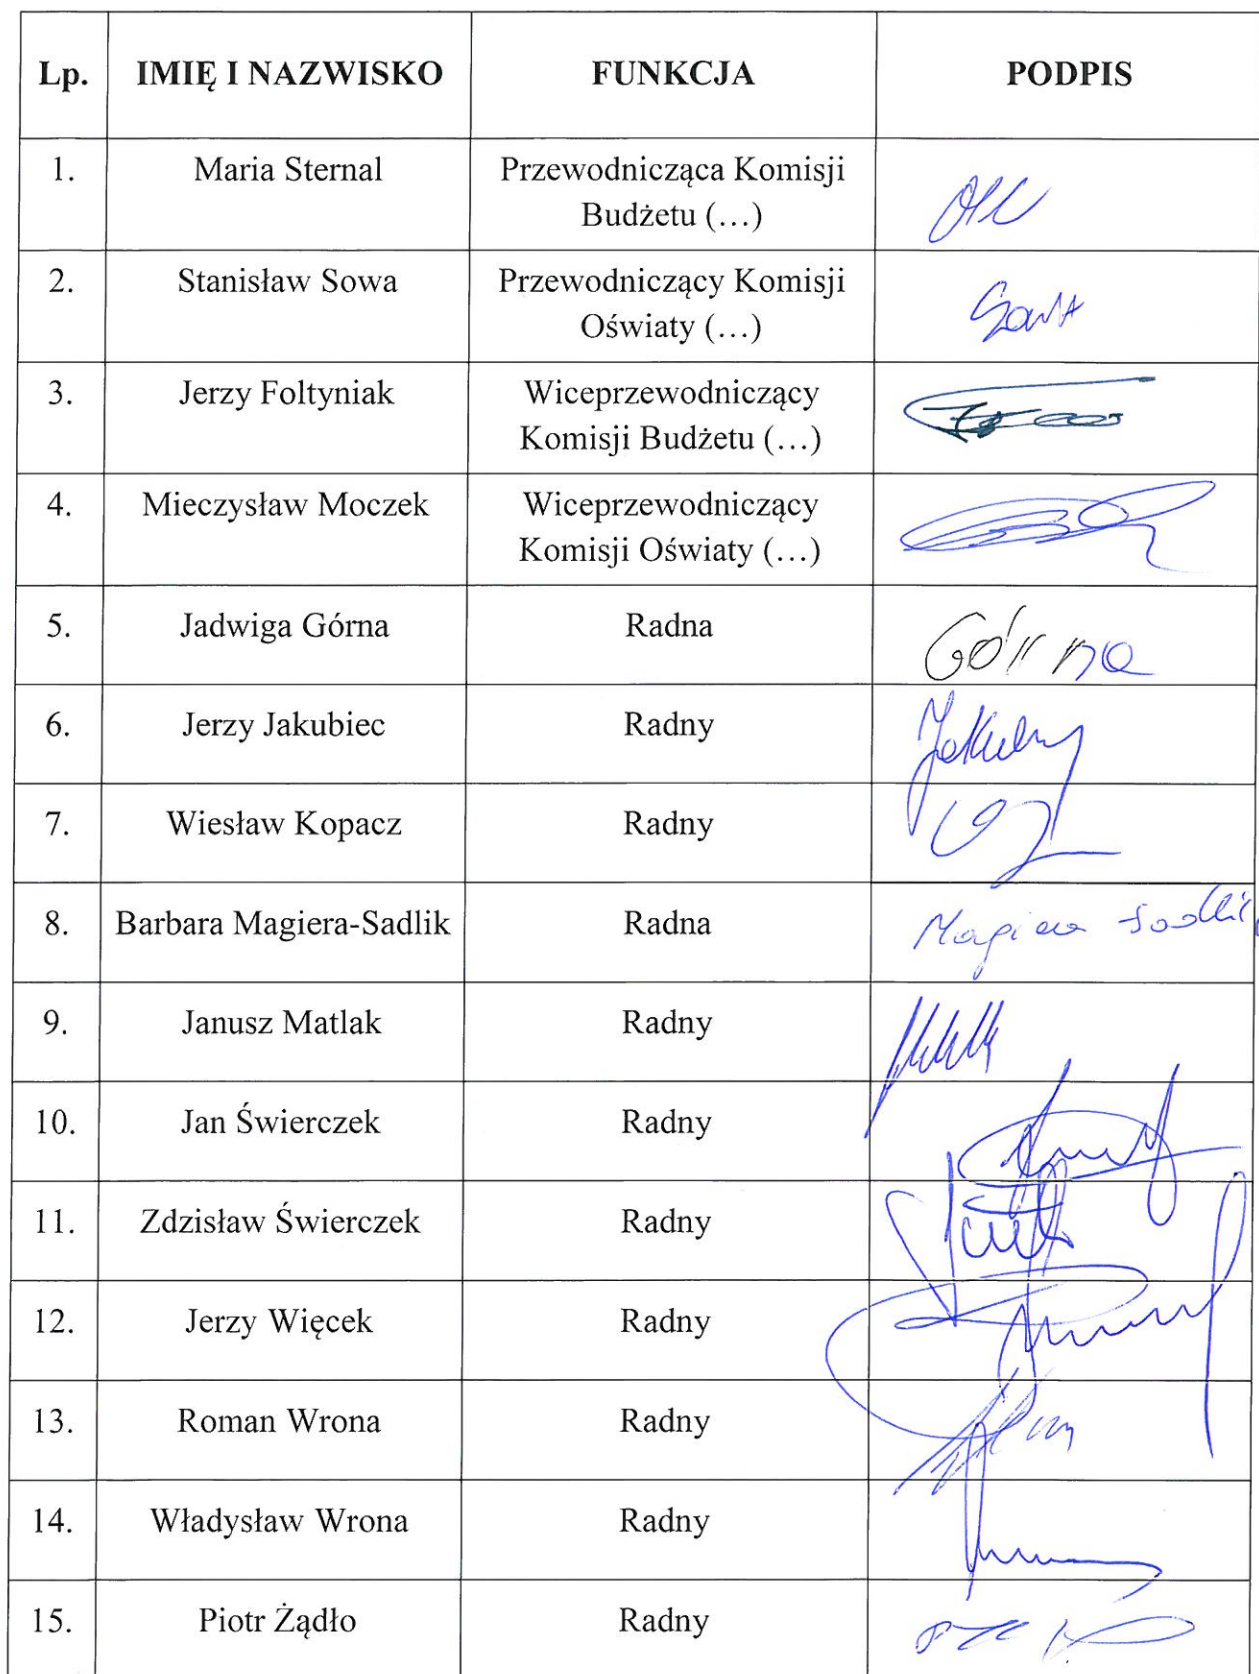 Lp. IMIĘ I NAZWISKO FUNKCJA PODPIS
1. Maria Sternal Przewodnicząca Komisji
Budżetu (…)
2. Stanisław Sowa Przewodniczący Komisji
Oświaty (…)
3. Jerzy Foltyniak Wiceprzewodniczący
Komisji Budżetu (…)
4. Mieczysław Moczek Wiceprzewodniczący
Komisji Oświaty (…)
5. Jadwiga Górna Radna Górna
6. Jerzy Jakubiec Radny
7. Wiesław Kopacz Radny
8. Barbara Magiera-Sadlik Radna Magiera Sadlik
9. Janusz Matlak Radny
10. Jan Świerczek Radny
11. Zdzisław Świerczek Radny
12. Jerzy Więcek Radny
13. Roman Wrona Radny
14. Władysław Wrona Radny
15. Piotr Żądło Radny